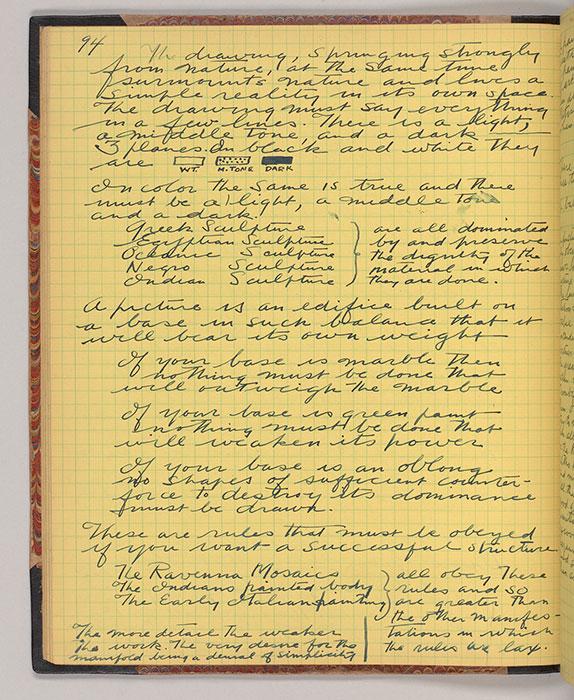 94
The drawing, springing strongly
from nature, at the same time
surmounts nature and lives a
simple reality in its own space.
The drawing must say everything
in a few lines. There is a light,
a middle tone, and a dark,
3 planes. In black and white they
are
WT. M.TONE DARK
In color the same is true and there
must be a light, a middle tone
and a dark.
Greek Sculpture
Egyptian Sculpture
Oceanic Sculpture
Negro Sculpture
Indian Sculpture
are all dominated
by and preserve
the dignity of the
material in which
they are done.
A picture is an edifice built on
a base in such balance that it
will bear its own weight
If your base is marble then
nothing must be done that
will outweigh the marble
If your base is green paint
nothing must be done that
will weaken its power
If your base is an oblong
no shapes of sufficient counter-
force to destroy its dominance
must be drawn.
These are rules that must be obeyed
if you want a successful structure
The Ravenna Mosaics
The Indians painted body
The Early Italian painting
all obey These
rules and so
are greater than
the other manifes-
tations in which
the rules are lax.
The more detail the weaker
the work. The very desire for the
manifold being a denial of simplicity